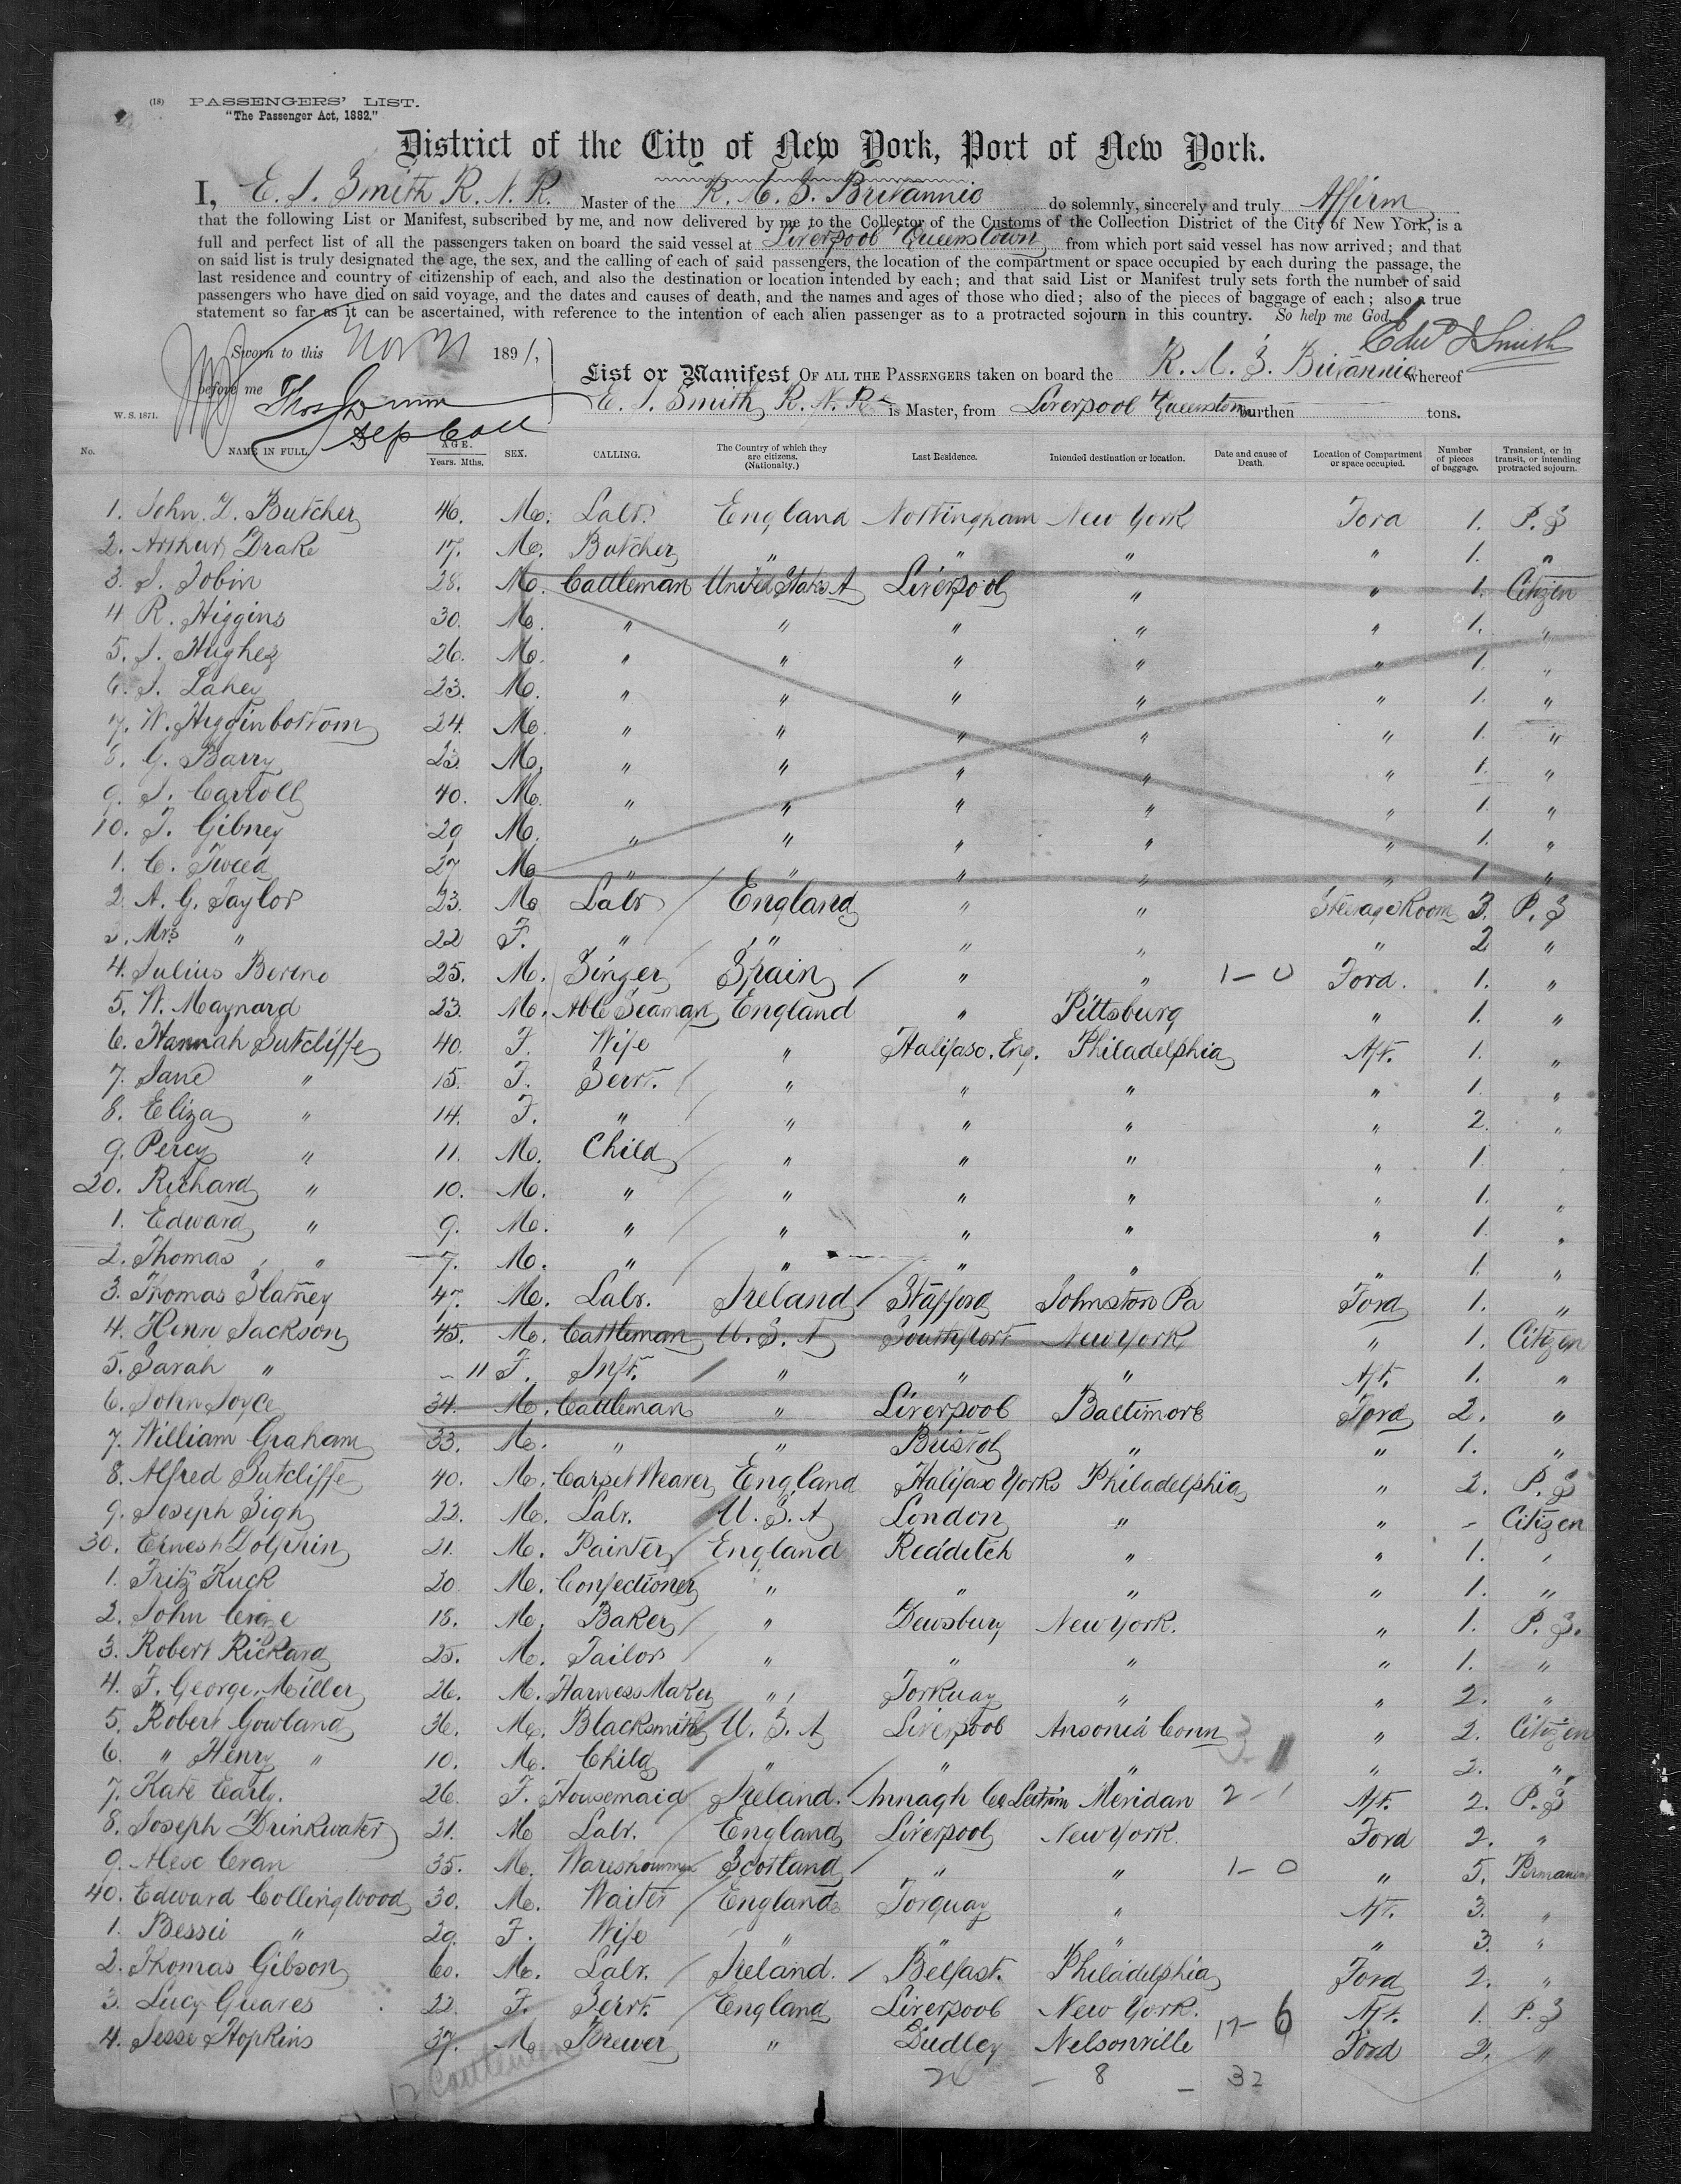 (18) PASSENGERS' LIST.
"The Passenger Act, 1882."
District of the City of New York, Port of New York.
I, E. J. Smith R. N. R. Master of the R. M. S. Britannic do solemnly, sincerely and truly Affirm
that the following List or Manifest, subscribed by me, and now delivered by me to the Collector of the Customs of the Collection District of the City of New York, is a
full and perfect list of all the passengers taken on board the said vessel at Liverpool Queenstown from which port said vessel has now arrived; and that
on said list is truly designated the age, the sex, and the calling of each of said passengers, the location of the compartment or space occupied by each during the passage, the
last residence and country of citizenship of each, and also the destination or location intended by each; and that said List or Manifest truly sets forth the number of said
passengers who have died on said voyage, and the dates and causes of death, and the names and ages of those who died; also of the pieces of baggage of each; also a true
statement so far as it can be ascertained, with reference to the intention of each alien passenger as to a protracted sojourn in this country. So help me God.
Edw J Smith
Sworn to this Nov 1891,
before me
List or Manifest OF ALL THE PASSENGERS taken on board the R. M. S. Britannic whereof
W. S. 1871. E. J. Smith R. N. R. is Master, from Liverpool & Queenstown burthen tons.
Dep Coll
No. NAME IN FULL. AGE. Years. Mths. SEX. CALLING. The Country of which they are citizens. (Nationality.) Last Residence. Intended destination or location. Date and cause of Death. Location of Compartment or space occupied. Number of pieces of baggage. Transient, or in transit, or intending protracted sojourn.
1. John. Butcher 46. M. Labr. England Nottingham New York Ford 1. P. S
2. Arthur Drake 17. M. Butcher " " " " 1. "
3. J. Tobin 28. M. Cattleman United States A Liverpool " " 1. Citizen
4 R. Higgins 30. M. " " " " " 1. "
5. J. Hughes 26. M. " " " " " 1. "
6. J. Lahey 23. M. " " " " " 1. "
7. W. Higginbottom 24. M. " " " " " 1. "
8. G. Barry 23 M. " " " " " 1. "
9. J. Carroll 40. M. " " " " " 1. "
10. T. Gibney 29 M. " " " " " 1. "
1. C. Tweed 27 M " " " " " 1 "
2. A. G. Taylor 23. M Labr England " " Steerage Room 3. P. S
3. Mrs " 22 F. " " " " " 2 "
4. Julius Bereno 25. M. Singer Spain " " 1-0 Ford. 1. "
5. W. Maynard 23. M. Able Seaman England " Pittsburg " 1. "
6. Hannah Sutcliffe 40. F. Wife " Halifax. Eng. Philadelphia Aft. 1. "
7. Jane " 15. F. Servt. " " " " 1. "
8. Eliza " 14. F. " " " " " 2. "
9. Percy " 11. M. Child " " " " 1 "
20. Richard " 10. M. " " " " " 1. "
1. Edward " 9. M. " " " " " 1. "
2. Thomas " 7. M. " " " " " 1. "
3. Thomas Slatney 47. M. Labr. Ireland Stafford Johnston Pa Ford 1. "
4. Henry Jackson 45. M. Cattleman U. S. A Southport New York " 1. Citizen
5. Sarah " 11 F. Inft. " " " Aft. 1. "
6. John Joyce 34. M. Cattleman " Liverpool Baltimore Ford 2. "
7. William Graham 33. M. " " Bristol " " 1. "
8. Alfred Sutcliffe 40. M. Carpet Weaver England Halifax Yorks Philadelphia " 2. P. S
9. Joseph Sigh 22. M. Labr. U. S. A London " " - Citizen
30. Ernest Dolphin 21. M. Painter England Redditch " " 1. "
1. Fritz Kuck 20 M. Confectioner " " " " 1. "
2. John 18. M. Baker " Dewsbury New York. " 1. P. S.
3. Robert Rickard 25. M. Tailor " " " " 1. "
4. F. George Miller 26. M. Harness Maker " Torkuay " " 2. "
5. Robert Gowland 36. M. Blacksmith U. S. A Liverpool Ansonia Conn 3 " 2. Citizen
6. " Henry " 10. M. Child " " " " 2. "
7. Kate Early. 26. F. Housemaid Ireland. Annagh Co Leitrim Meridan 2-1 Aft. 2. P. S
8. Joseph Drinkwater 21. M Labr. England Liverpool New York. Ford 2. "
9. Alex Cran 35. M. Wareshouman Scotland " " 1-0 " 5. Permanent
40. Edward Collingwood 30. M. Waiter England Torquay " Aft. 3. "
1. Bessie " 29. F. Wife " " " " 3. "
2. Thomas Gibson 60. M. Labr. Ireland. Belfast. Philadelphia Ford 2. "
3. Lucy Gueares 22. F. Servt. England Liverpool New York. Aft. 1. P. S
4. Jesse Hopkins 37. M Brewer " Dudley Nelsonville 17-6 Ford 2. "
12 Cattlemen 24 - 8 - 32